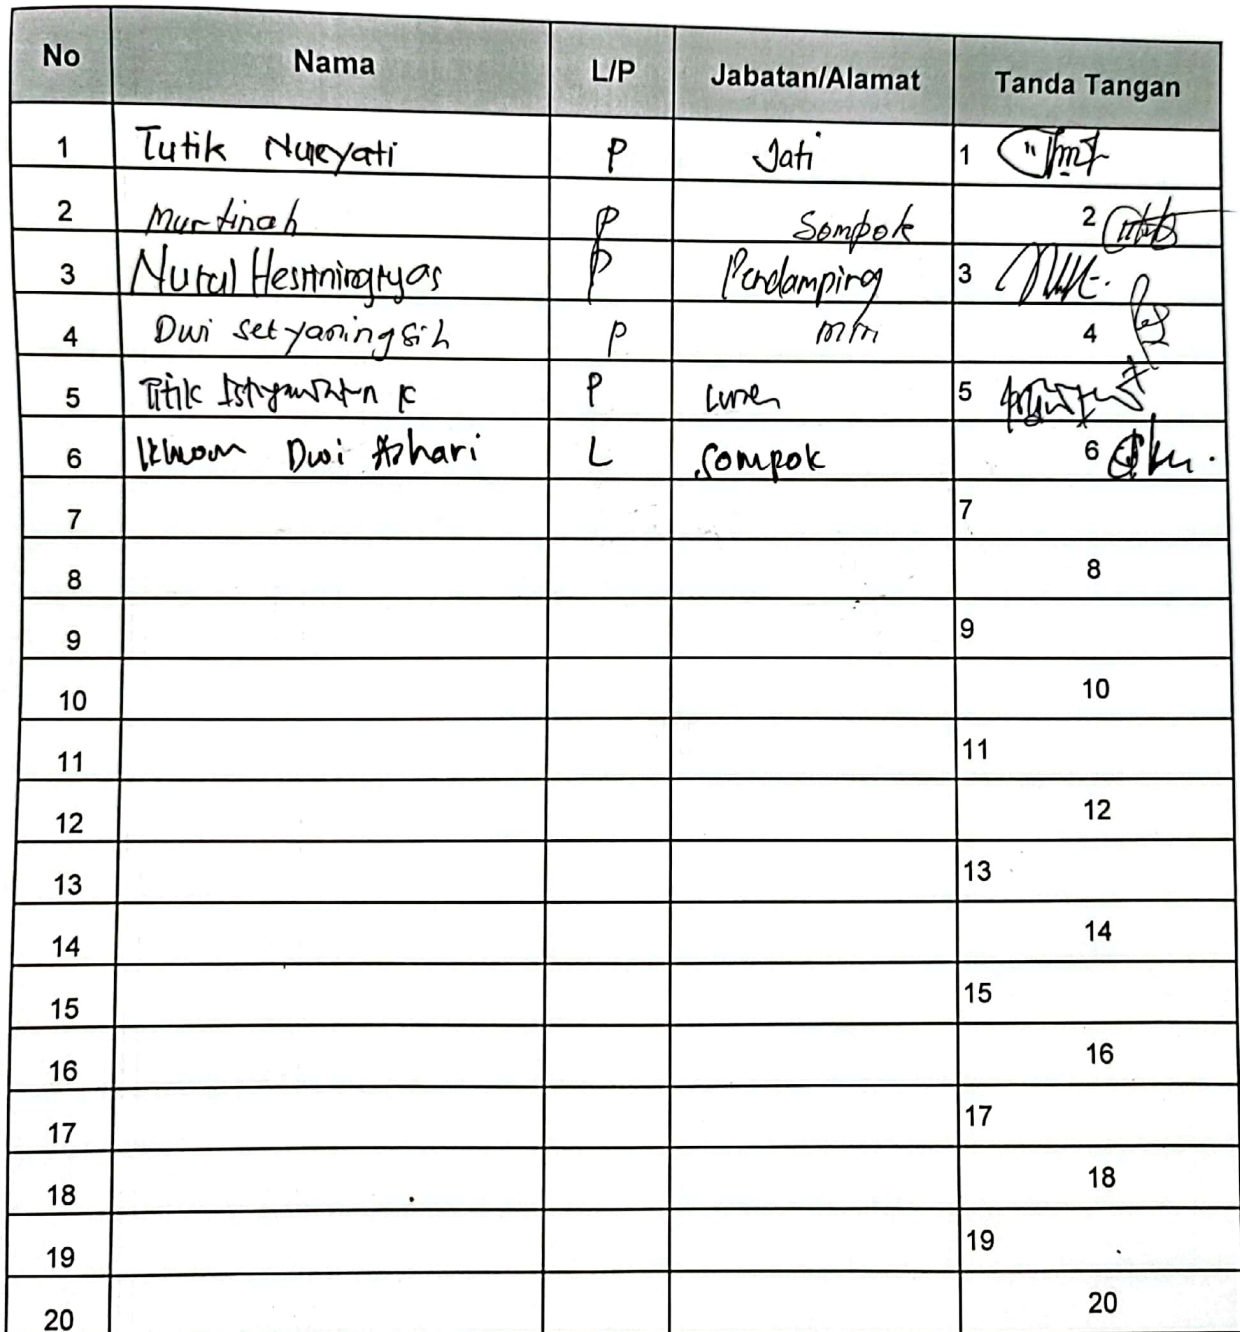 No Nama L/P Jabatan/Alamat Tanda Tangan
1 Tutik Nuryati P Jati 1
2 Murtinah P Sompok 2
3 Nurul Hestiningtyas P Pendamping 3
4 Dwi setyaningsih P 4
5 Titik P 5
6 Dwi Azhari L Sompok 6
7 7
8 8
9 9
10 10
11 11
12 12
13 13
14 14
15 15
16 16
17 17
18 18
19 19
20 20